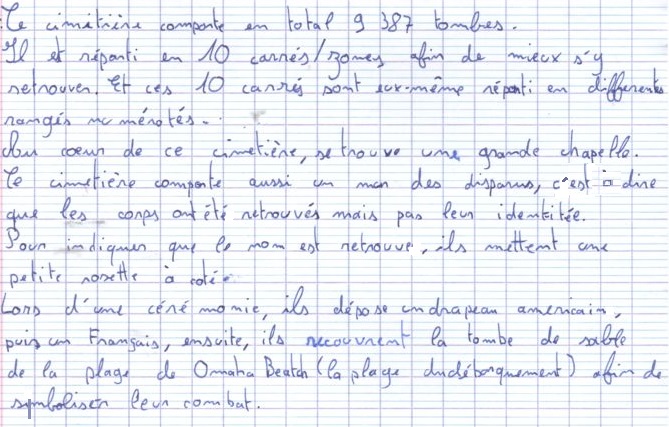 Ce cimetière comporte en total 9 387 tombes.
Il et réparti en 10 carrés/zones afin de mieux s'y
retrouver. Et ces 10 carrés sont eux-même réparti en differentes
rangés numérotés.
Au cœur de ce cimetière, se trouve une grande chapelle.
Ce cimetière comporte aussi un mur des disparus, c'est à dire
que les corps ont été retrouvés mais pas leur identitée.
Pour indiquer que le nom est retrouvé, ils mettent une
petite rosette à coté.
Lors d'une cérémonie, ils dépose un drapeau americain,
puis un Français, ensuite, ils recouvrent la tombe de sable
de la plage de Omaha Beatch (la plage du débarquement) afin de
symboliser leur combat.